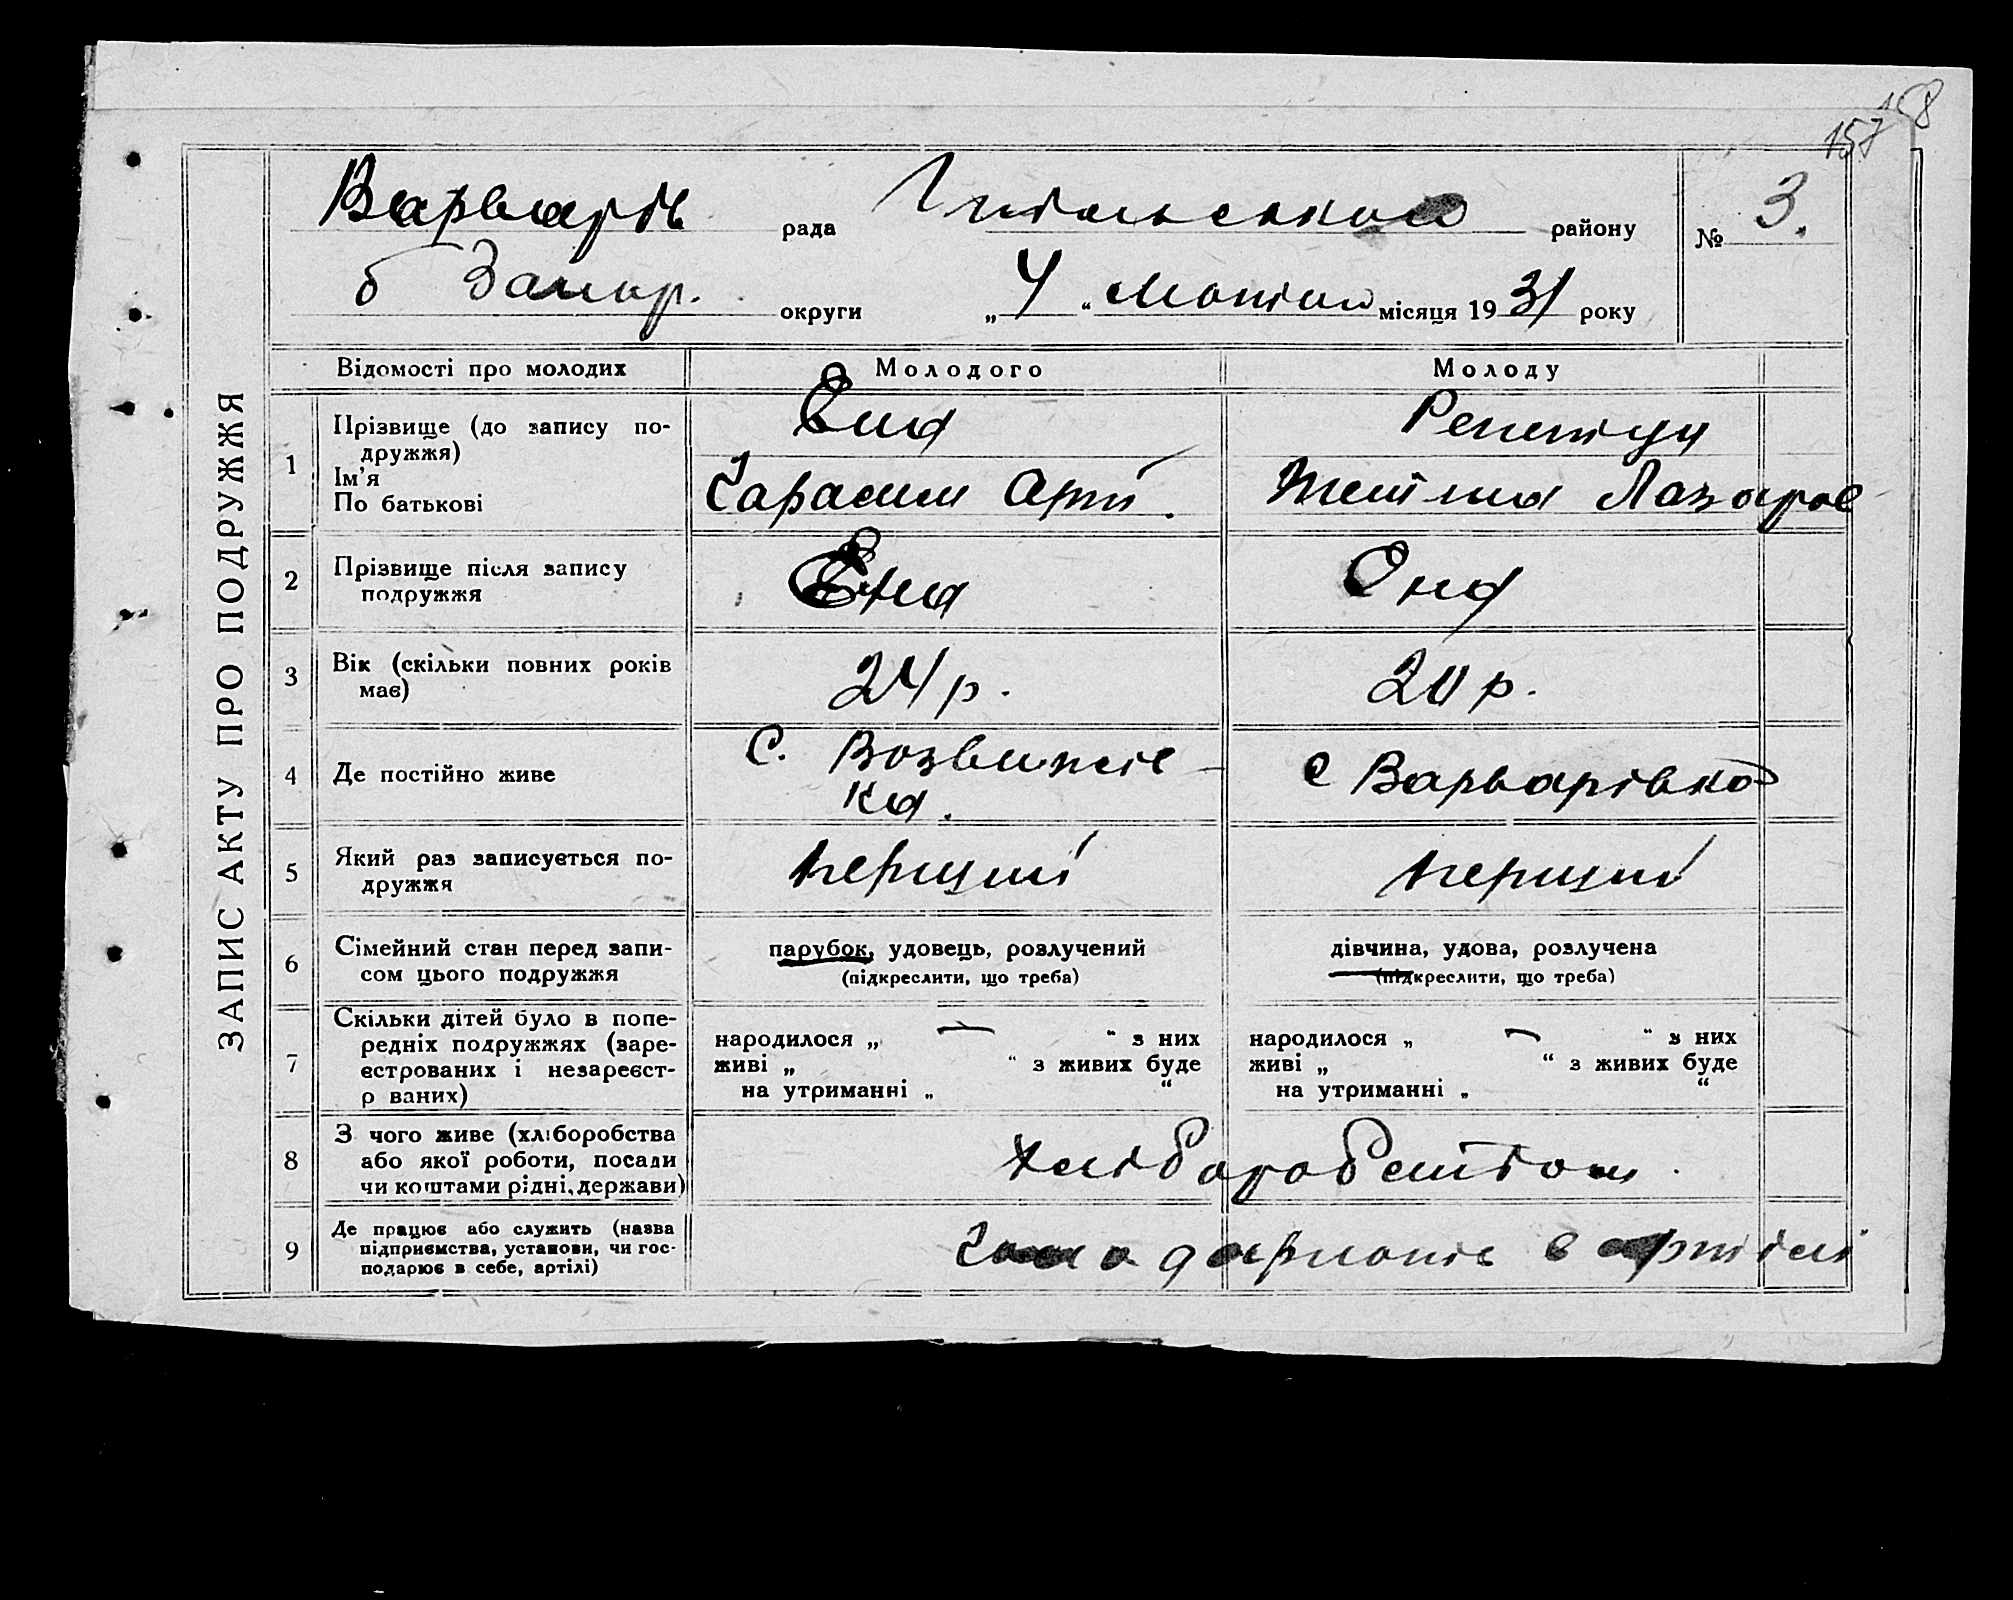 158
157
Варварів рада Гуляйського району № 3.
б Запор. округи „ 4 “ лютого місяця 19 31 року
ЗАПИС АКТУ ПРО ПОДРУЖЖЯ
Відомості про молодих Молодого Молоду
1 Прізвище (до запису по-
дружжя)
Ім'я
По батькові
Ена
Гарасим Арт.
Репетун
Тетяна Лазаров
2 Прізвище після запису
подружжя
Ена Ена
3 Вік (скільки повних років
має)
24 р. 20 р.
4 Де постійно живе
С. Возвижів-
ка.
с Варварівка
5 Який раз записується по-
дружжя
перший перший
6 Сімейний стан перед запи-
сом цього подружжя
парубок, удовець, розлучений
(підкреслити, що треба)
дівчина, удова, розлучена
(підкреслити, що треба)
7 Скільки дітей було в попе-
редніх подружжях (заре-
єстрованих і незареєст-
р ваних)
народилося „ — “ з них
живі „ “ з живих буде
на утриманні „ “
народилося „ — “ з них
живі „ “ з живих буде
на утриманні „ “
8 З чого живе (хліборобства
або якої роботи, посади
чи коштами рідні, держави)
хліборобством.
9 Де працює або служить (назва
підприємства, установи, чи гос-
подарює в себе, артілі)
в артілі